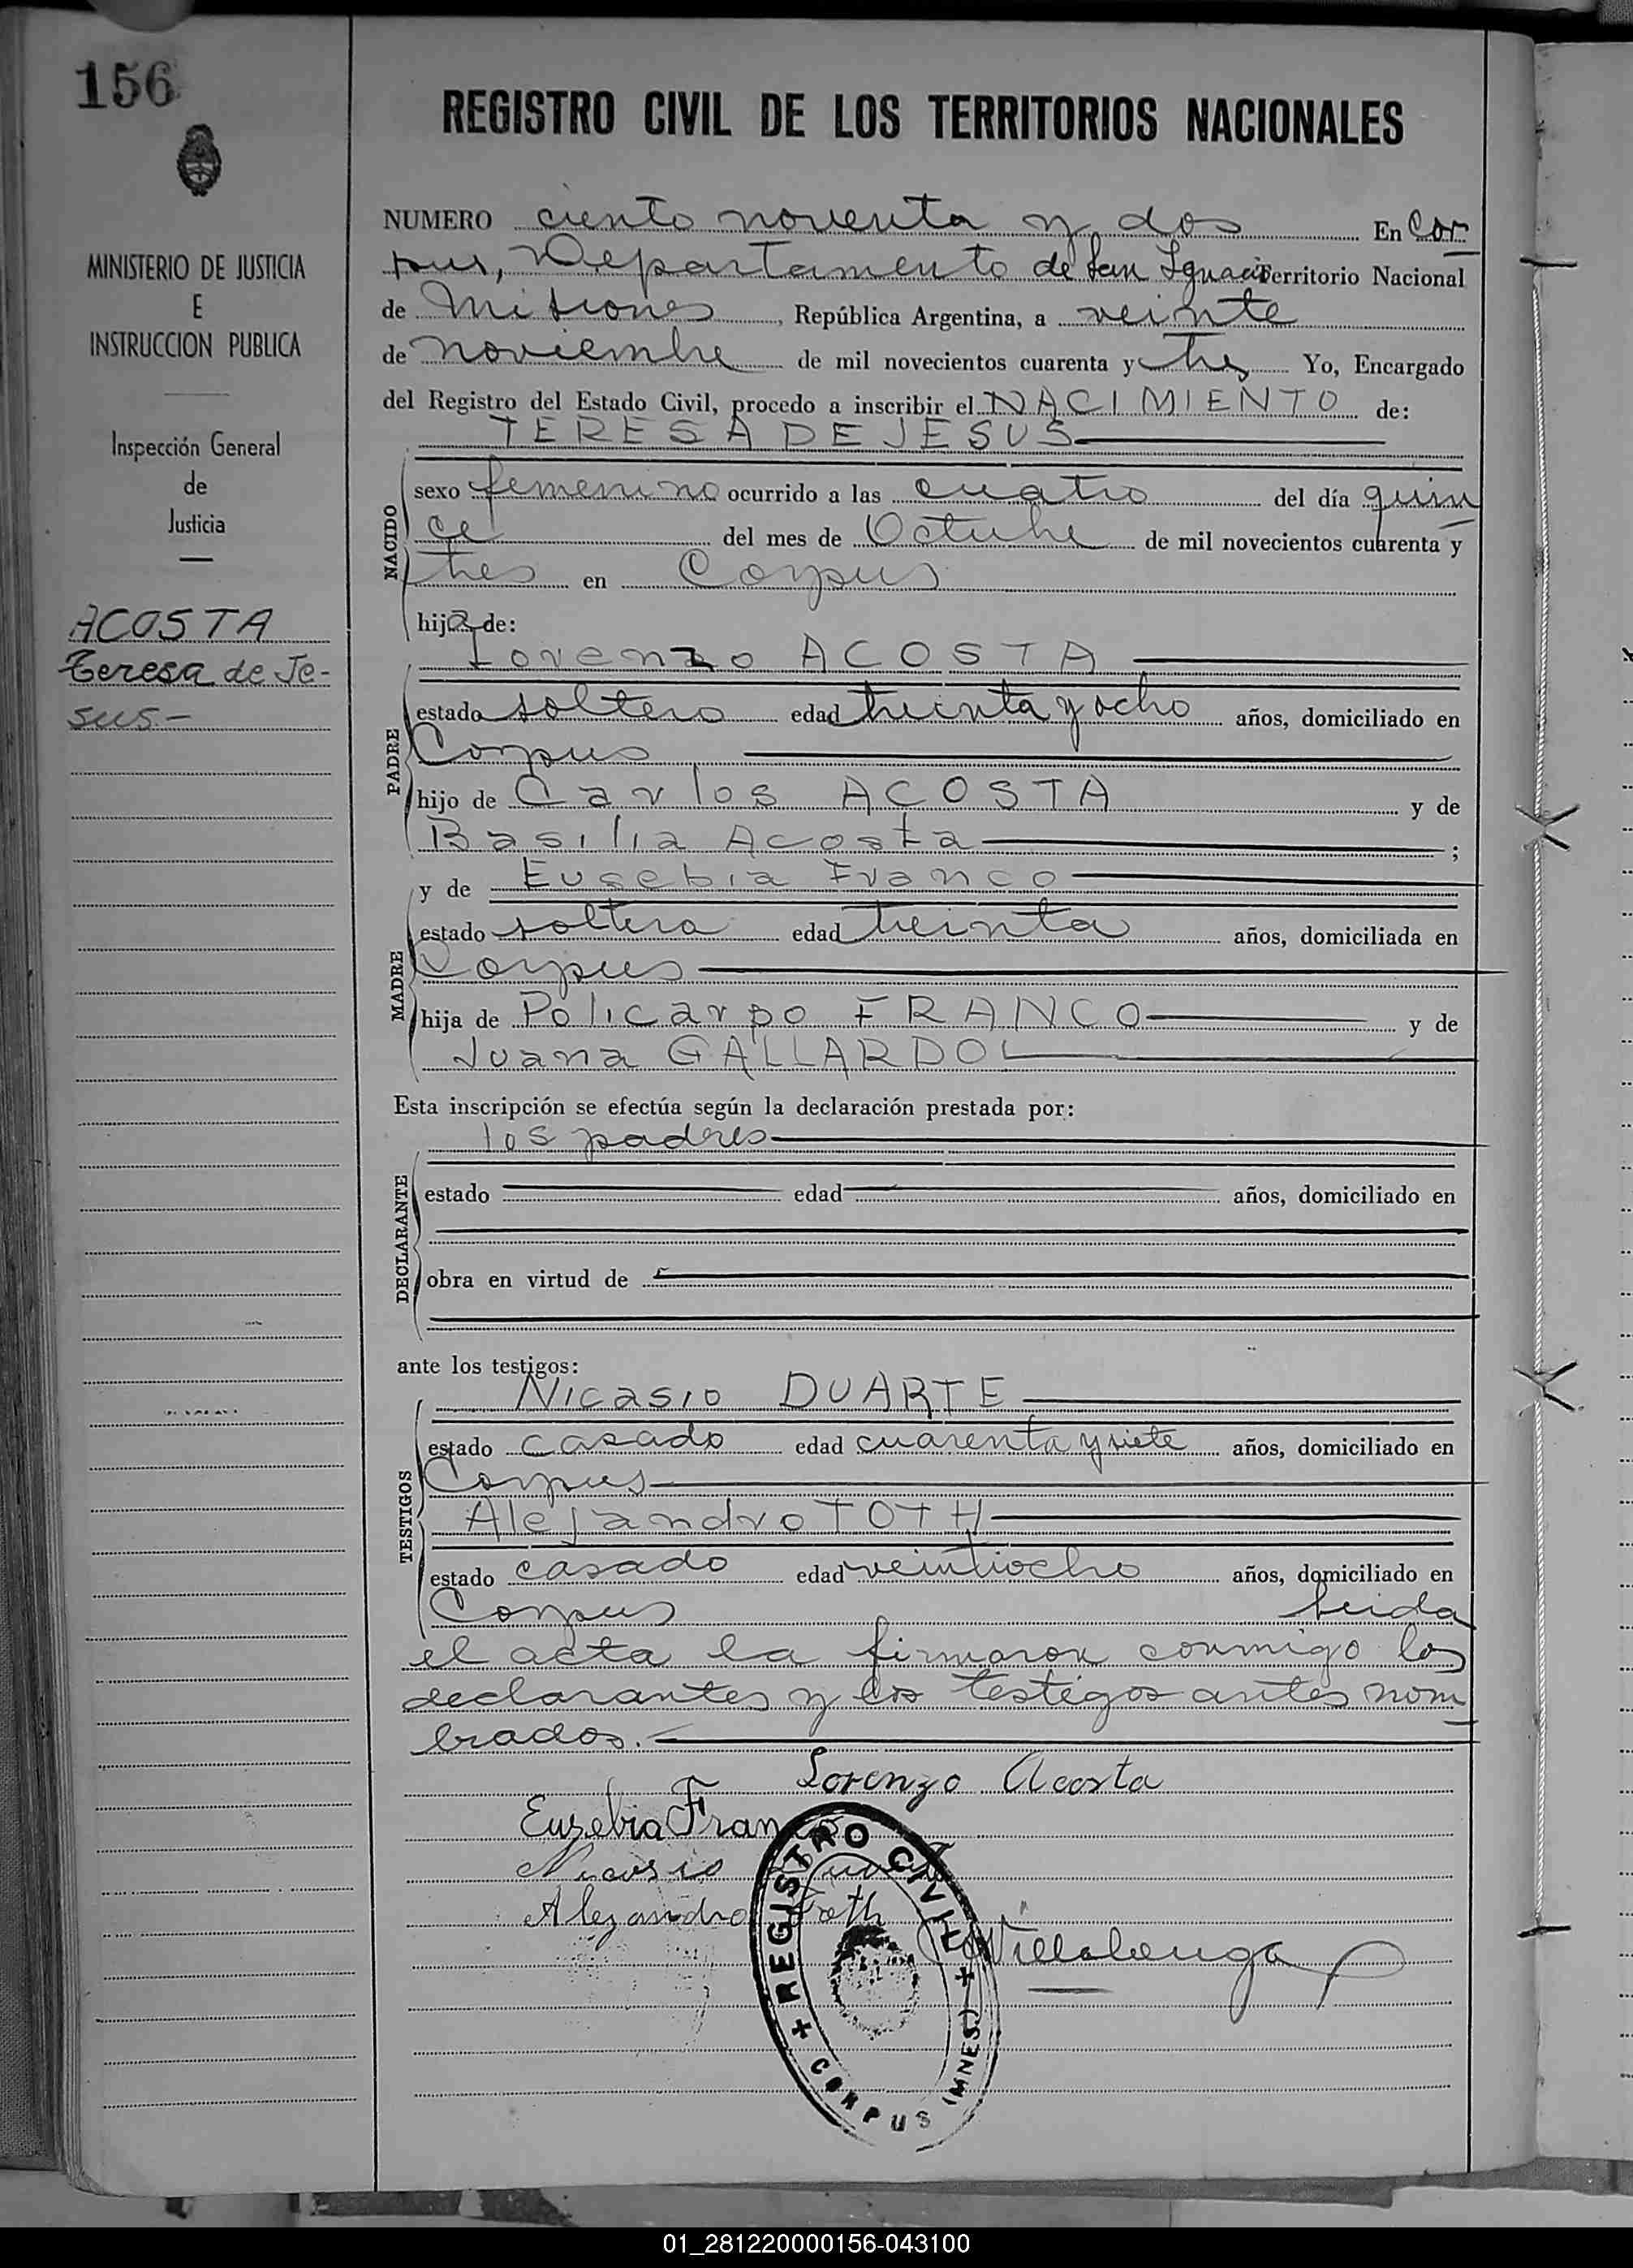 156
MINISTERIO DE JUSTICIA
E
INSTRUCCION PUBLICA
Inspección General
de
Justicia
ACOSTA
Teresa de Je-
sus.-
REGISTRO CIVIL DE LOS TERRITORIOS NACIONALES
NUMERO ciento noventa y dos En Cor
pus, Departamento de San Ignacio Territorio Nacional
de Misiones, República Argentina, a veinte
de noviembre de mil novecientos cuarenta y tres Yo, Encargado
del Registro del Estado Civil, procedo a inscribir el NACIMIENTO de:
TERESA DE JESUS
NACIDO
sexo femenino ocurrido a las cuatro del día quin
ce del mes de Octubre de mil novecientos cuarenta y
tres en Corpus
hija de:
Lorenzo ACOSTA
PADRE
estado soltero edad treinta y ocho años, domiciliado en
Corpus
hijo de Carlos ACOSTA y de
Basilia Acosta ;
y de Eusebia Franco
MADRE
estado soltera edad treinta años, domiciliada en
Corpus
hija de Policarpo FRANCO y de
Juana GALLARDO
Esta inscripción se efectúa según la declaración prestada por:
los padres
DECLARANTE
estado edad años, domiciliado en
obra en virtud de
ante los testigos:
Nicasio DUARTE
TESTIGOS
estado casado edad cuarenta y siete años, domiciliado en
Corpus
Alejandro TOTH
estado casado edad veintiocho años, domiciliado en
Corpus Leida
el acta la firmaron conmigo los
declarantes y los testigos antes nom
brados.-
Lorenzo Acosta
Eusebia Franco
Nicasio
Alejandro Toth
Villalenga
REGISTRO CIVIL
CORPUS (MNES)
01_281220000156-043100